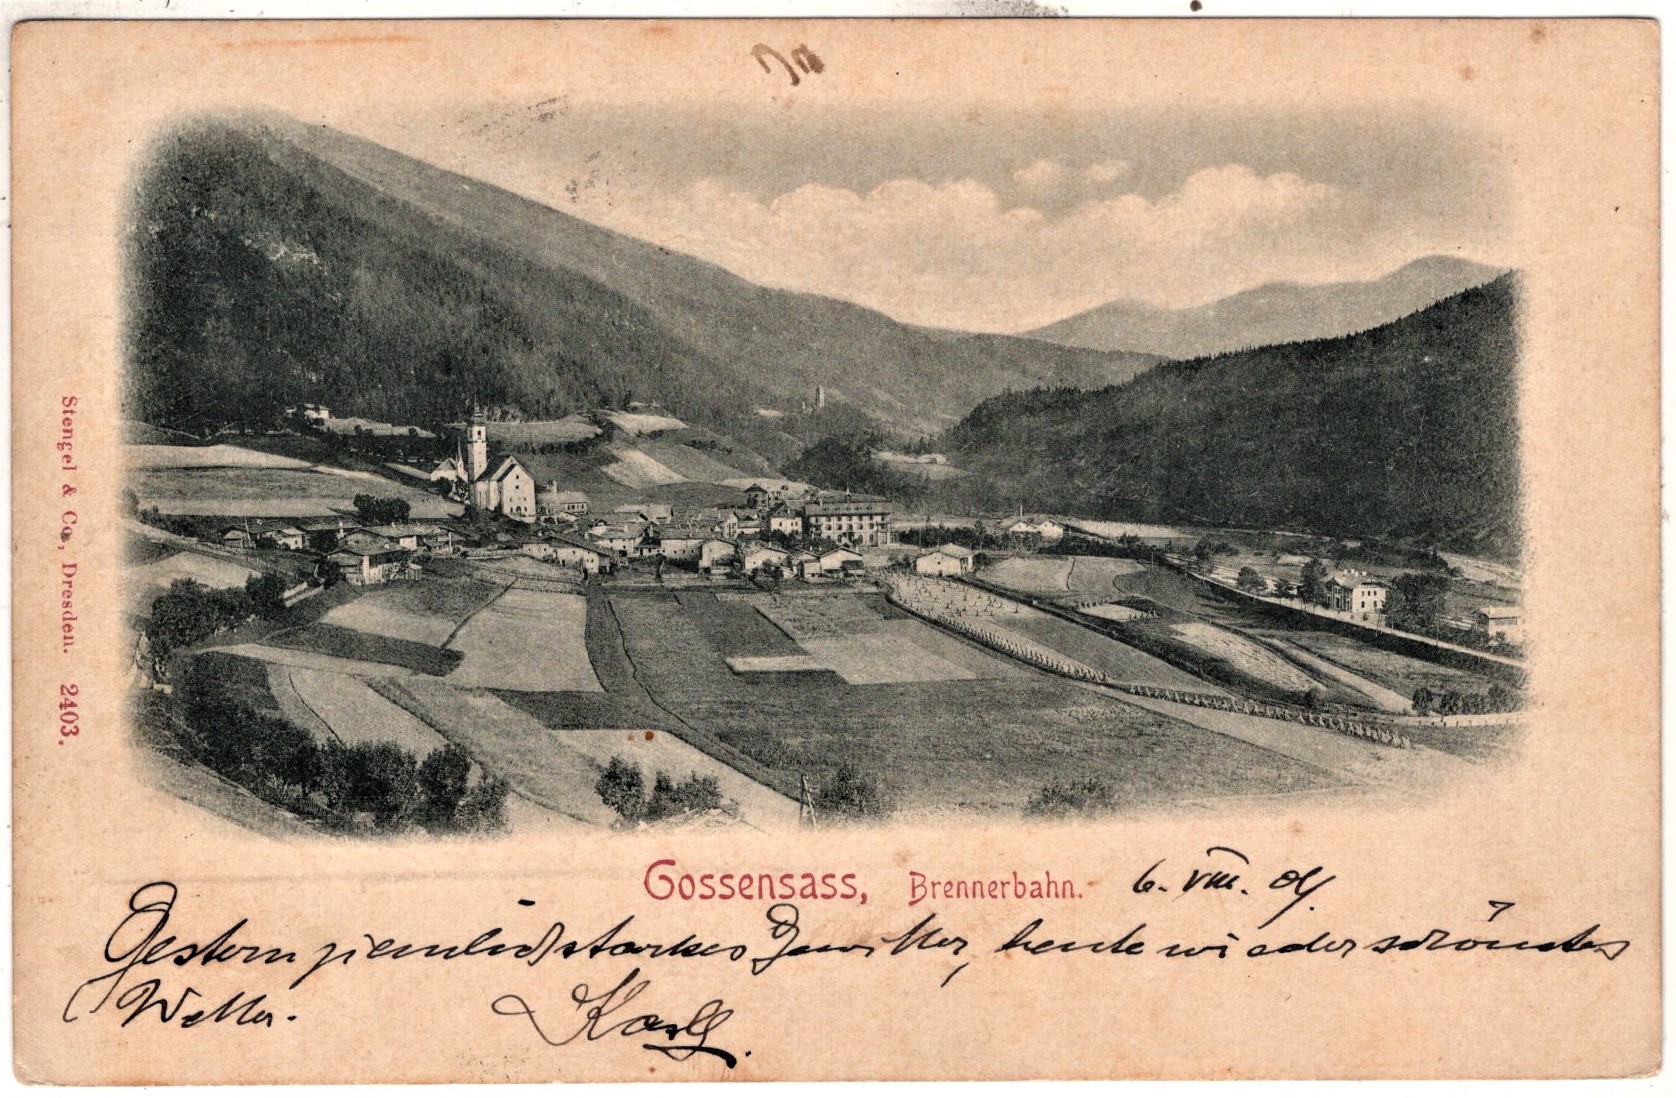 Stengel & Co., Dresden. 2403.
Gossensass, Brennerbahn. 6. VIII. 04.
Gestern ziemlich starkes Gewitter, heute wieder schönstes
Wetter. Karl.